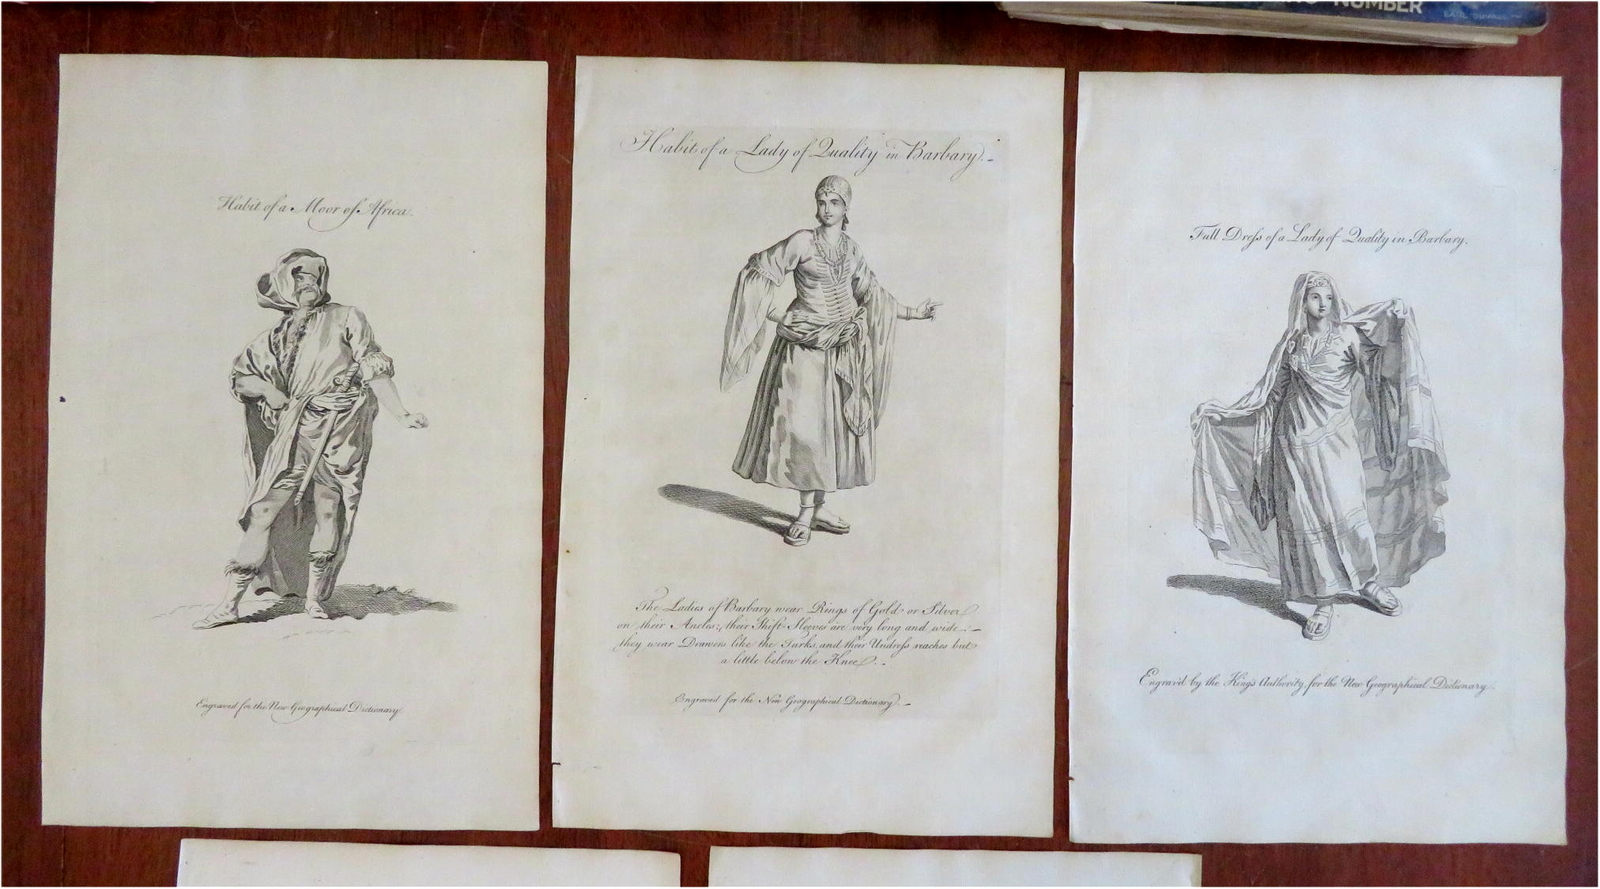 NUMBER
Habit of a Moor of Africa.
Engraved for the New Geographical Dictionary
Habit of a Lady of Quality in Barbary.
The Ladies of Barbary wear Rings of Gold or Silver
on their Ancles; their Shift Sleeves are very long and wide
they wear Drawers like the Turks, and their Undress reaches but
a little below the Knee.
Engraved for the New Geographical Dictionary.
Full Dress of a Lady of Quality in Barbary.
Engrav'd by the King's Authority, for the New Geographical Dictionary